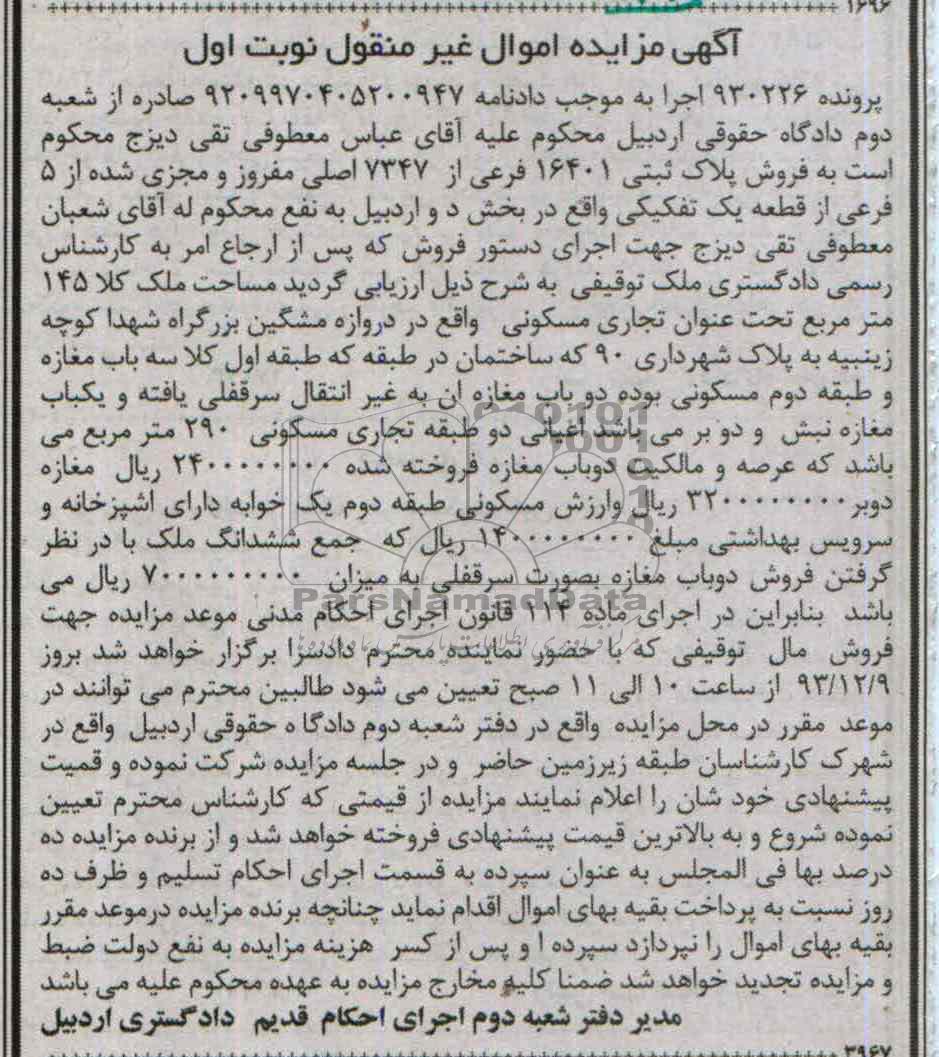 ۱۶۹۶
آگهی مزایده اموال غیر منقول نوبت اول
پرونده ۹۳۰۲۲۶ اجرا به موجب دادنامه ۹۲۰۹۹۷۰۴۰۵۲۰۰۹۴۷ صادره از شعبه
دوم دادگاه حقوقی اردبیل محکوم علیه آقای عباس معطوفی تقی دیزج محکوم
است به فروش پلاک ثبتی ۱۶۴۰۱ فرعی از ۷۳۴۷ اصلی مفروز و مجزی شده از ۵
فرعی از قطعه یک تفکیکی واقع در بخش د و اردبیل به نفع محکوم له آقای شعبان
معطوفی تقی دیزج جهت اجرای دستور فروش که پس از ارجاع امر به کارشناس
رسمی دادگستری ملک توقیفی به شرح ذیل ارزیابی گردید مساحت ملک کلا ۱۴۵
متر مربع تحت عنوان تجاری مسکونی واقع در دروازه مشگین بزرگراه شهدا کوچه
زینبیه به پلاک شهرداری ۹۰ که ساختمان در طبقه که طبقه اول کلا سه باب مغازه
و طبقه دوم مسکونی بوده دو باب مغازه ان به غیر انتقال سرقفلی یافته و یکباب
مغازه نبش و دو بر می باشد اعیانی دو طبقه تجاری مسکونی ۲۹۰ متر مربع می
باشد که عرصه و مالکیت دوباب مغازه فروخته شده ۲۴۰۰۰۰۰۰۰۰ ریال مغازه
دوبر ۳۲۰۰۰۰۰۰۰۰ ریال وارزش مسکونی طبقه دوم یک خوابه دارای اشپزخانه و
سرویس بهداشتی مبلغ ۱۴۰۰۰۰۰۰۰۰ ریال که جمع ششدانگ ملک با در نظر
گرفتن فروش دوباب مغازه بصورت سرقفلی به میزان ۷۰۰۰۰۰۰۰۰۰ ریال می
باشد بنابراین در اجرای ماده ۱۱۴ قانون اجرای احکام مدنی موعد مزایده جهت
فروش مال توقیفی که با حضور نماینده محترم دادسرا برگزار خواهد شد بروز
۹۳/۱۲/۹ از ساعت ۱۰ الی ۱۱ صبح تعیین می شود طالبین محترم می توانند در
موعد مقرر در محل مزایده واقع در دفتر شعبه دوم دادگا ه حقوقی اردبیل واقع در
شهرک کارشناسان طبقه زیرزمین حاضر و در جلسه مزایده شرکت نموده و قمیت
پیشنهادی خود شان را اعلام نمایند مزایده از قیمتی که کارشناس محترم تعیین
نموده شروع و به بالاترین قیمت پیشنهادی فروخته خواهد شد و از برنده مزایده ده
درصد بها فی المجلس به عنوان سپرده به قسمت اجرای احکام تسلیم و ظرف ده
روز نسبت به پرداخت بقیه بهای اموال اقدام نماید چنانچه برنده مزایده درموعد مقرر
بقیه بهای اموال را نپردازد سپرده ا و پس از کسر هزینه مزایده به نفع دولت ضبط
و مزایده تجدید خواهد شد ضمنا کلیه مخارج مزایده به عهده محکوم علیه می باشد
مدیر دفتر شعبه دوم اجرای احکام قدیم دادگستری اردبیل
۳۹۶۷
ParsNamadData